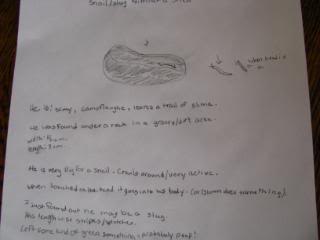 Snail/slug
2
when bend it
He is: slimy, camoflaughe, leaves a trail of slime.
He was found under a rock in a grassy/dirt area.
width: cm.
length: cm.
He is very big for a snail. Crawls around/very active.
When touched on the head it goes into his body - (or it some does something).
I just found out he may be a slug.
Has length wise stripes/splotches.
Left some kind of green something - probably poop!